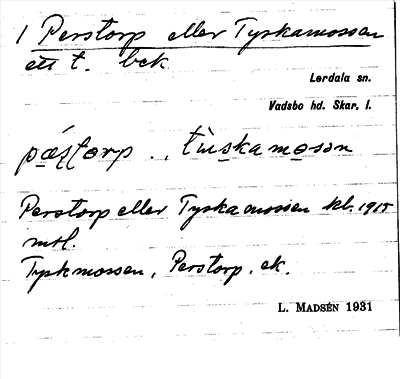 1 Perstorp eller Tyskamossen
ett t. bek
Lerdala sn.
Vadsbo hd. Skar. l.
Perstorp eller Tyskamossen kb. 1915
mtl.
Tyskmossen, Perstorp, ek.
L. MADSÉN 1931